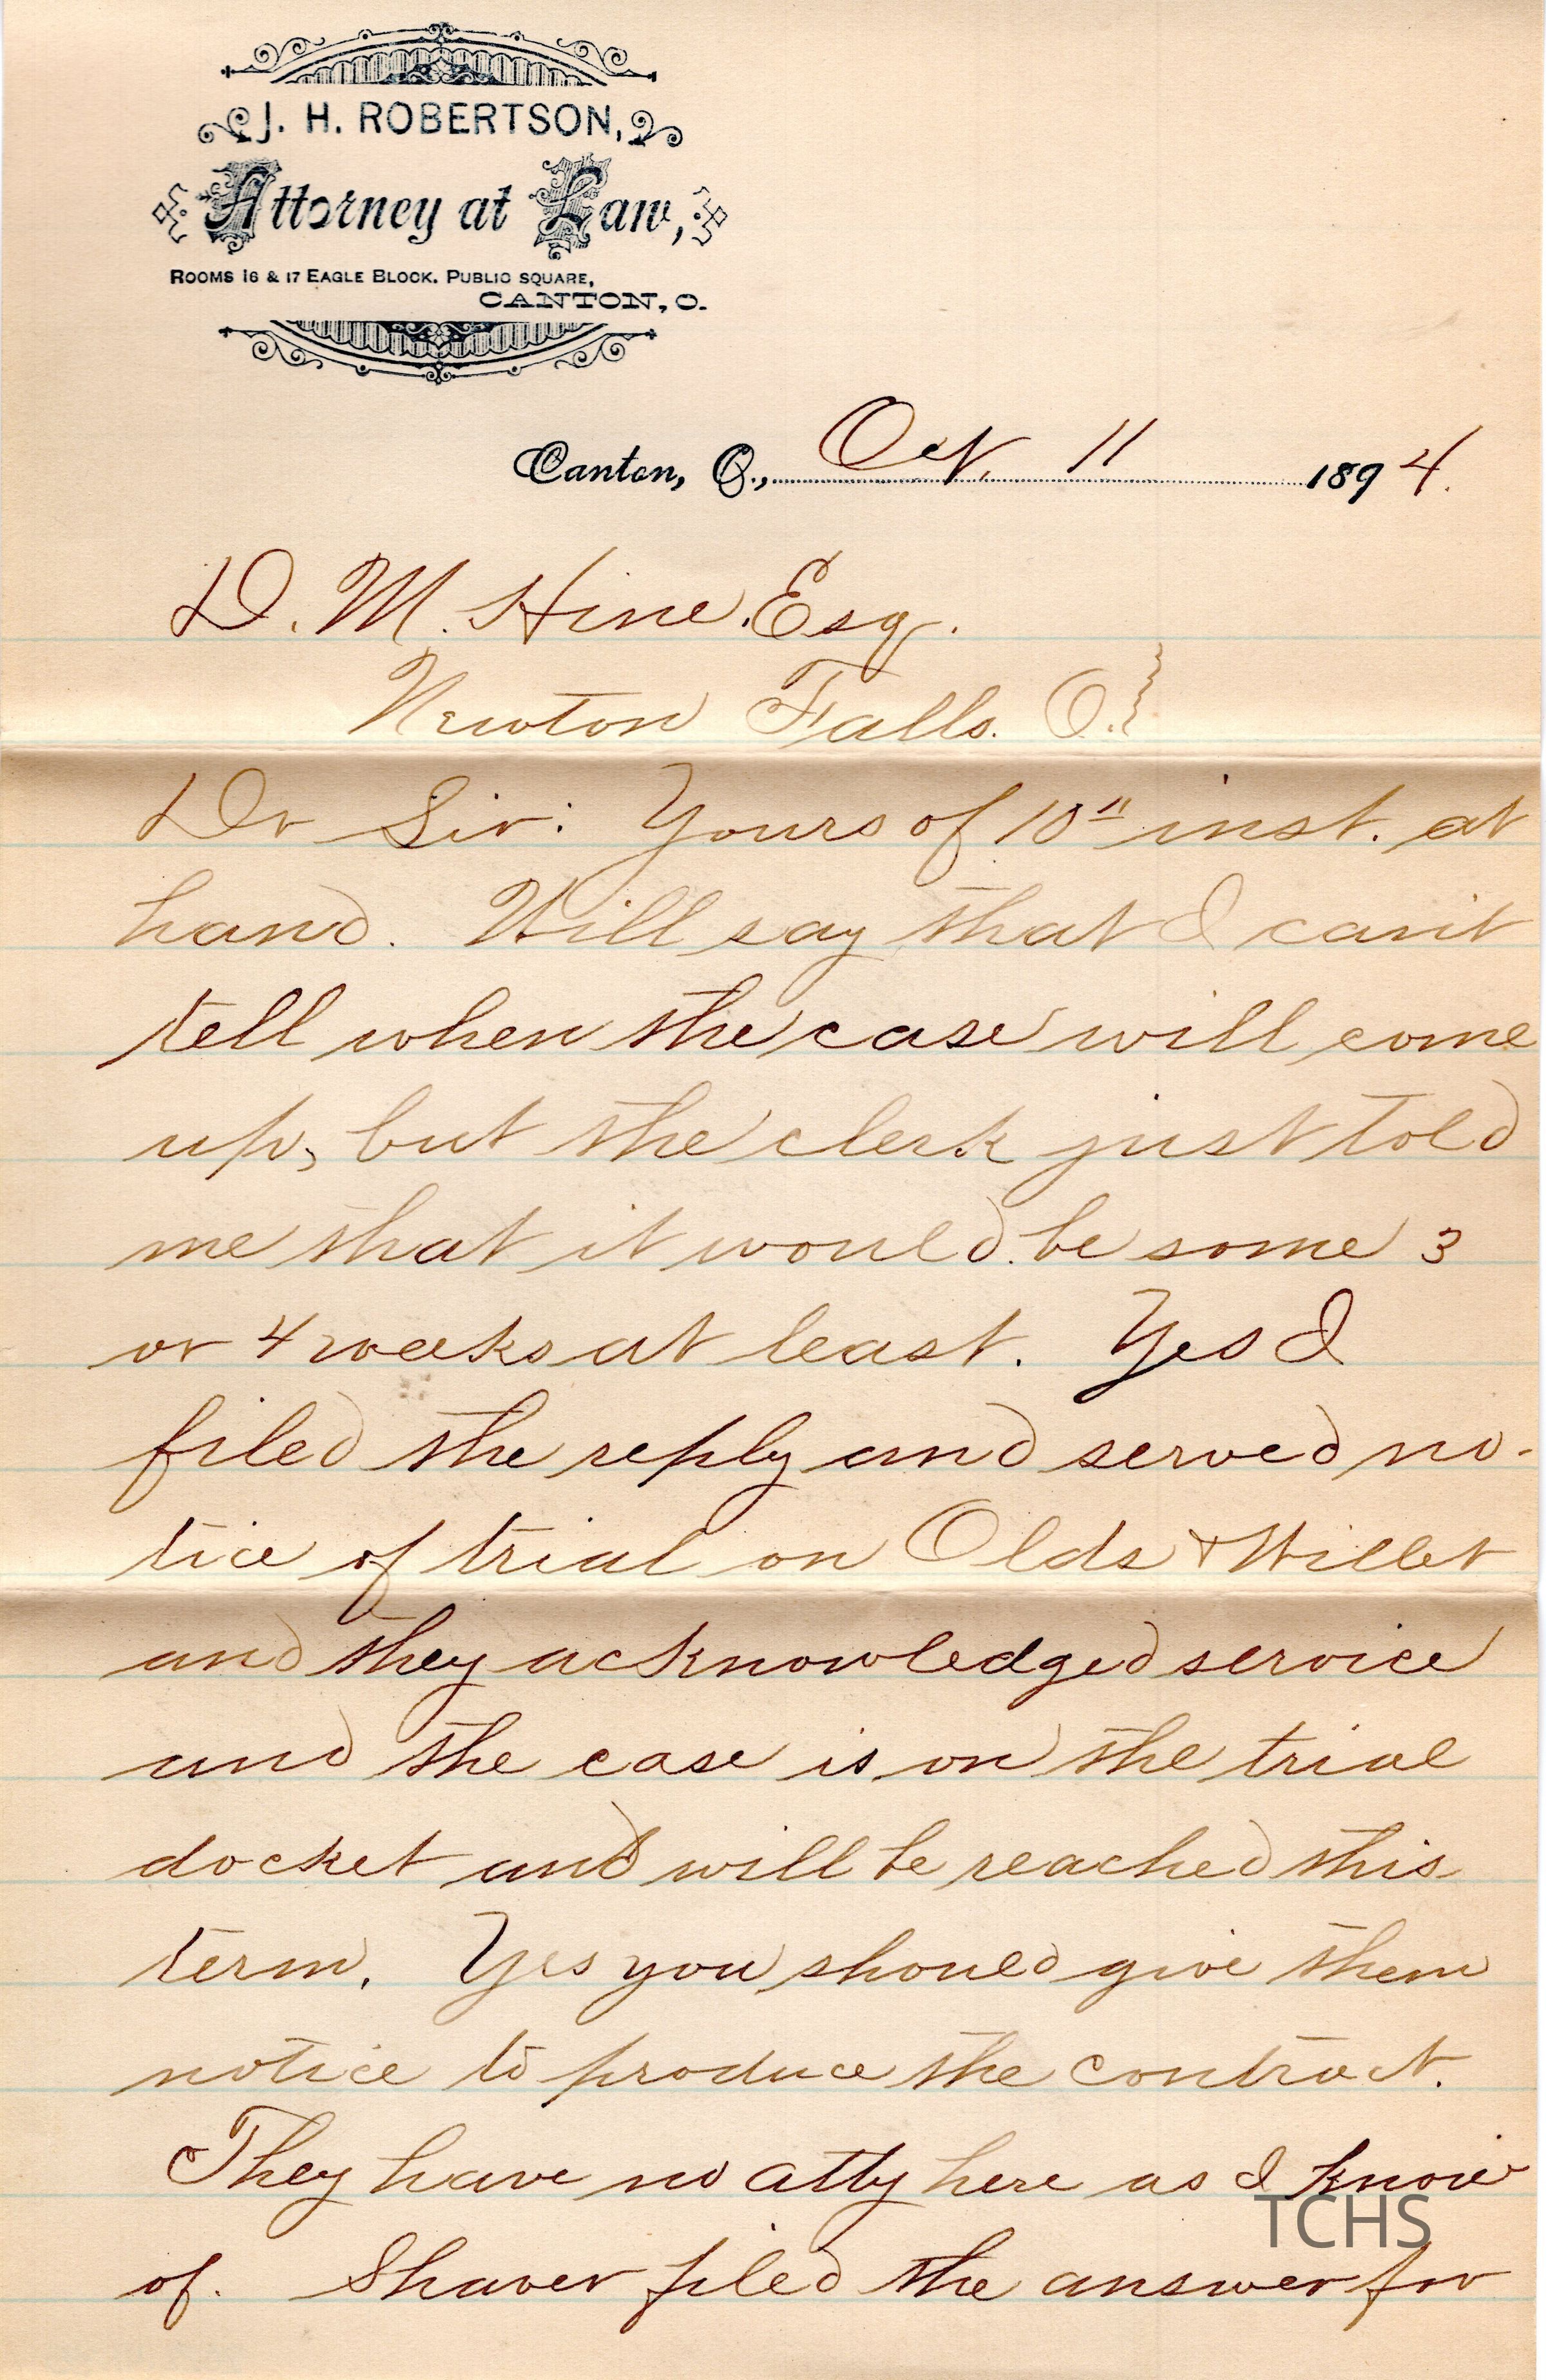 J. H. ROBERTSON,
Attorney at Law,
ROOMS 16 & 17 EAGLE BLOCK, PUBLIC SQUARE,
CANTON, O.
Canton, O., Oct. 11 1894.
D. M. Hine, Esq.
Newton Falls. O.}
Dr Sir: Yours of 10" inst. at
hand. Will say that I can't
tell when the case will come
up, but the clerk just told
me that it would be some 3
or 4 weeks at least. Yes I
filed the reply and served no-
tice of trial on Olds & Willet
and they acknowledged service
and the case is on the trial
docket and will be reached this
term. Yes you should give them
notice to produce the contract.
They have no atty here as I know
of. Shaver filed the answer for
TCHS